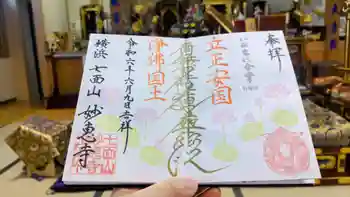 奉拝
立正安国
南無妙法蓮華経
浄佛国土
令和六年六月九日吉祥
横浜 七面山 妙恵寺